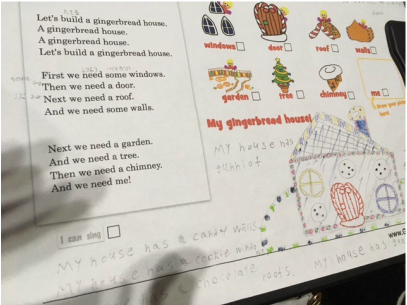 Let's build a gingerbread house.
A gingerbread house.
A gingerbread house.
Let's build a gingerbread house.
First we need some windows.
Then we need a door.
Next we need a roof.
And we need some walls.
Next we need a garden.
And we need a tree.
Then we need a chimney.
And we need me!
I can sing
windows door roof walls
garden tree chimney me
My gingerbread house!
My house has
My house has a candy walls
My house has a cookie
chocolate roofs. My house has